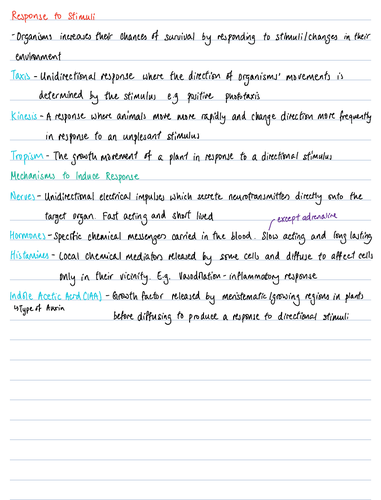 Response to Stimuli
- Organisms increases their chances of survival by responding to stimuli/changes in their
environment
Taxis - Unidirectional response where the direction of organisms' movements is
determined by the stimulus e.g positive phototaxis
Kinesis - A response where animals move more rapidly and change direction more frequently
in response to an unpleasant stimulus
Tropism - The growth movement of a plant in response to a directional stimulus
Mechanisms to Induce Response
Nerves - Unidirectional electrical impulses which secrete neurotransmitters directly onto the
target organ. Fast acting and short lived
except adrenaline
Hormones - Specific chemical messengers carried in the blood. Slow acting and long lasting
Histamines - Local chemical mediators released by some cells and diffuse to affect cells
only in their vicinity. E.g. Vasodilation - inflammatory response
Indole Acetic Acid (IAA) - Growth factor released by meristematic/growing regions in plants
↳ Type of Auxin
before diffusing to produce a response to directional stimuli